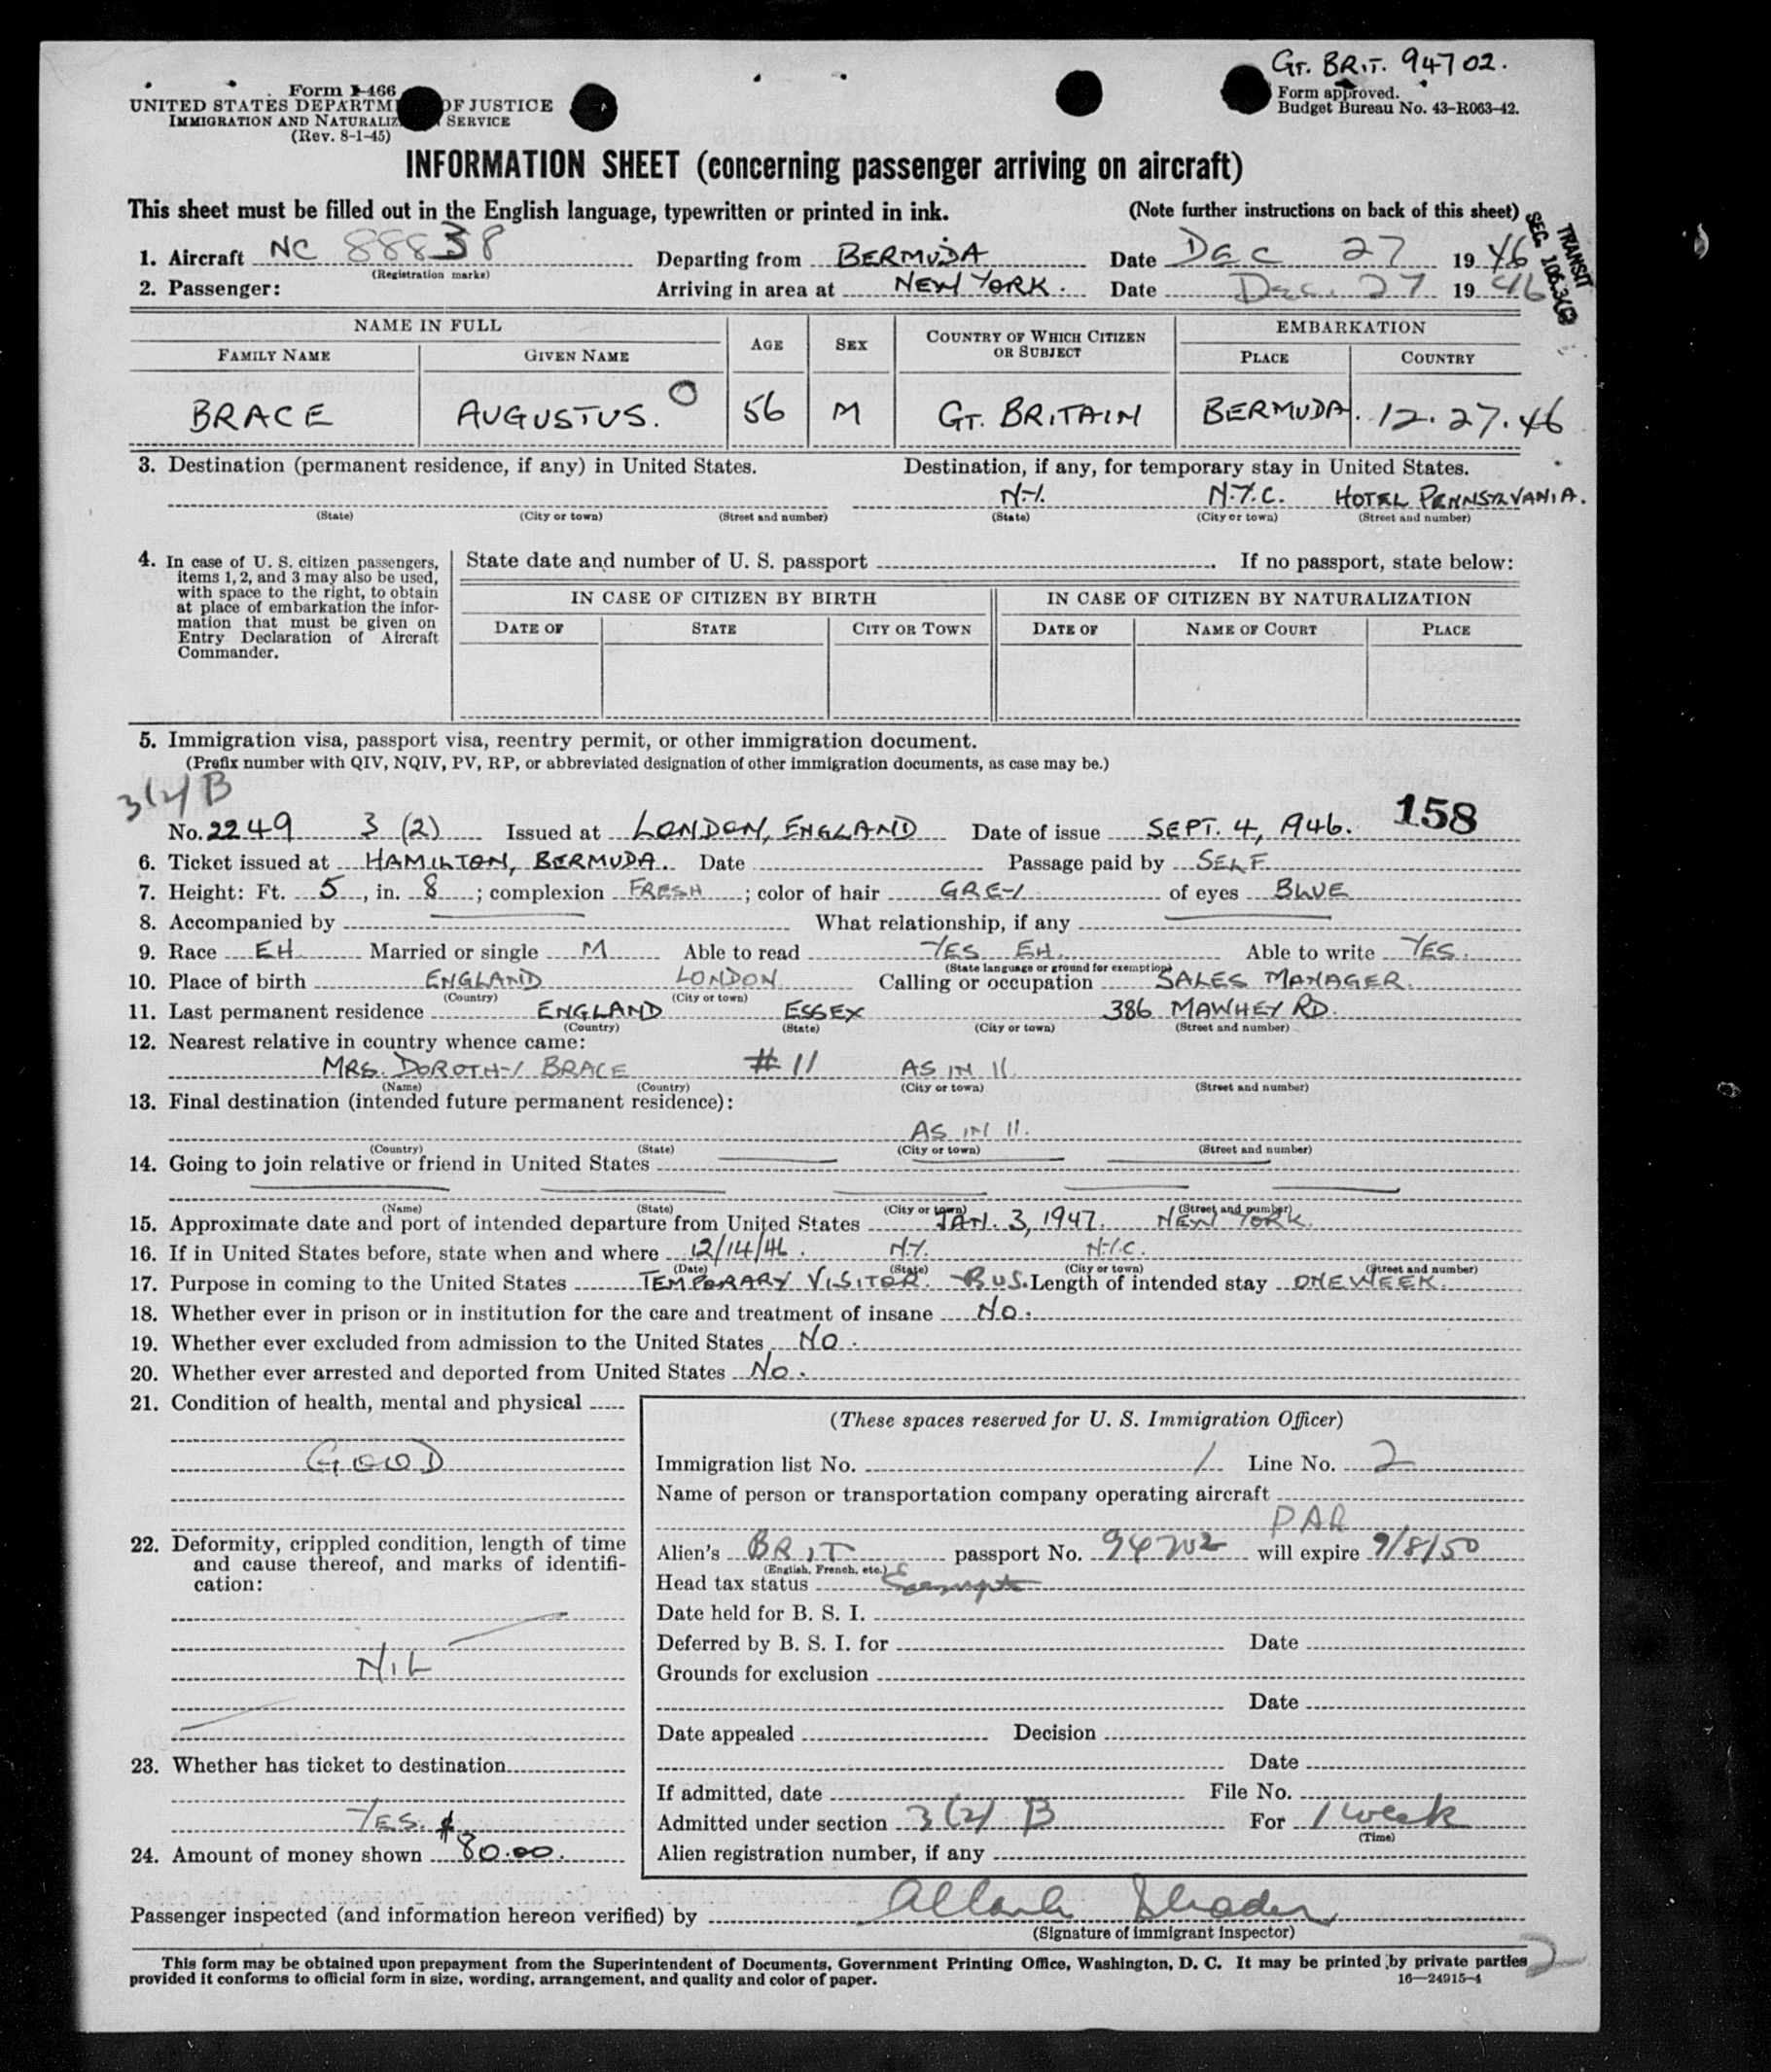 GT. BRIT. 94702.
Form I-466
UNITED STATES DEPARTM OF JUSTICE
IMMIGRATION AND NATURALIZ SERVICE
(Rev. 8-1-45)
Form approved.
Budget Bureau No. 43-R063-42.
INFORMATION SHEET (concerning passenger arriving on aircraft)
This sheet must be filled out in the English language, typewritten or printed in ink. (Note further instructions on back of this sheet)
TRANSIT
SEC. 106.3(G)
1. Aircraft NC 88838 Departing from BERMUDA Date DEC 27 1946
(Registration marks)
2. Passenger: Arriving in area at NEW YORK. Date Dec. 27 1946
NAME IN FULL AGE SEX COUNTRY OF WHICH CITIZEN OR SUBJECT EMBARKATION
FAMILY NAME GIVEN NAME PLACE COUNTRY
BRACE AUGUSTUS. O 56 M GT. BRITAIN BERMUDA. 12.27.46
3. Destination (permanent residence, if any) in United States. Destination, if any, for temporary stay in United States.
N.Y. N.Y.C. HOTEL PENNSYLVANIA.
(State) (City or town) (Street and number) (State) (City or town) (Street and number)
4. In case of U. S. citizen passengers, items 1, 2, and 3 may also be used, with space to the right, to obtain at place of embarkation the information that must be given on Entry Declaration of Aircraft Commander.
State date and number of U. S. passport . If no passport, state below:
IN CASE OF CITIZEN BY BIRTH IN CASE OF CITIZEN BY NATURALIZATION
DATE OF STATE CITY OR TOWN DATE OF NAME OF COURT PLACE
5. Immigration visa, passport visa, reentry permit, or other immigration document.
(Prefix number with QIV, NQIV, PV, RP, or abbreviated designation of other immigration documents, as case may be.)
3(2) B
158
No. 2249 3 (2) Issued at LONDON, ENGLAND Date of issue SEPT. 4, 1946.
6. Ticket issued at HAMILTON, BERMUDA. Date Passage paid by SELF
7. Height: Ft. 5, in. 8; complexion FRESH; color of hair GREY of eyes BLUE
8. Accompanied by What relationship, if any
9. Race EH Married or single M Able to read YES EH. Able to write YES.
(State language or ground for exemption)
10. Place of birth ENGLAND LONDON Calling or occupation SALES MANAGER.
(Country) (City or town)
11. Last permanent residence ENGLAND ESSEX 386 MAWHEY RD.
(Country) (State) (City or town) (Street and number)
12. Nearest relative in country whence came:
MRS. DOROTHY BRACE # 11 AS IN 11.
(Name) (Country) (City or town) (Street and number)
13. Final destination (intended future permanent residence):
AS IN 11.
(Country) (State) (City or town) (Street and number)
14. Going to join relative or friend in United States
(Name) (State) (City or town) (Street and number)
15. Approximate date and port of intended departure from United States JAN. 3, 1947. NEW YORK.
16. If in United States before, state when and where 12/14/46. N.Y. N.Y.C.
(Date) (State) (City or town) (Street and number)
17. Purpose in coming to the United States TEMPORARY VISITOR. BUS. Length of intended stay ONE WEEK.
18. Whether ever in prison or in institution for the care and treatment of insane NO.
19. Whether ever excluded from admission to the United States NO.
20. Whether ever arrested and deported from United States NO.
21. Condition of health, mental and physical
GOOD
22. Deformity, crippled condition, length of time
and cause thereof, and marks of identifi-
cation:
NIL
23. Whether has ticket to destination
YES.
24. Amount of money shown $80.00.
(These spaces reserved for U. S. Immigration Officer)
Immigration list No. 1 Line No. 2
Name of person or transportation company operating aircraft
PAA
Alien's BRIT passport No. 94702 will expire 9/8/50
(English, French, etc.)
Head tax status Exempt
Date held for B. S. I.
Deferred by B. S. I. for Date
Grounds for exclusion
Date
Date appealed Decision
Date
If admitted, date File No.
Admitted under section 3(2) B For 1 week
(Time)
Alien registration number, if any
Passenger inspected (and information hereon verified) by
(Signature of immigrant inspector)
This form may be obtained upon prepayment from the Superintendent of Documents, Government Printing Office, Washington, D. C. It may be printed by private parties
provided it conforms to official form in size, wording, arrangement, and quality and color of paper. 16—24915-4
2